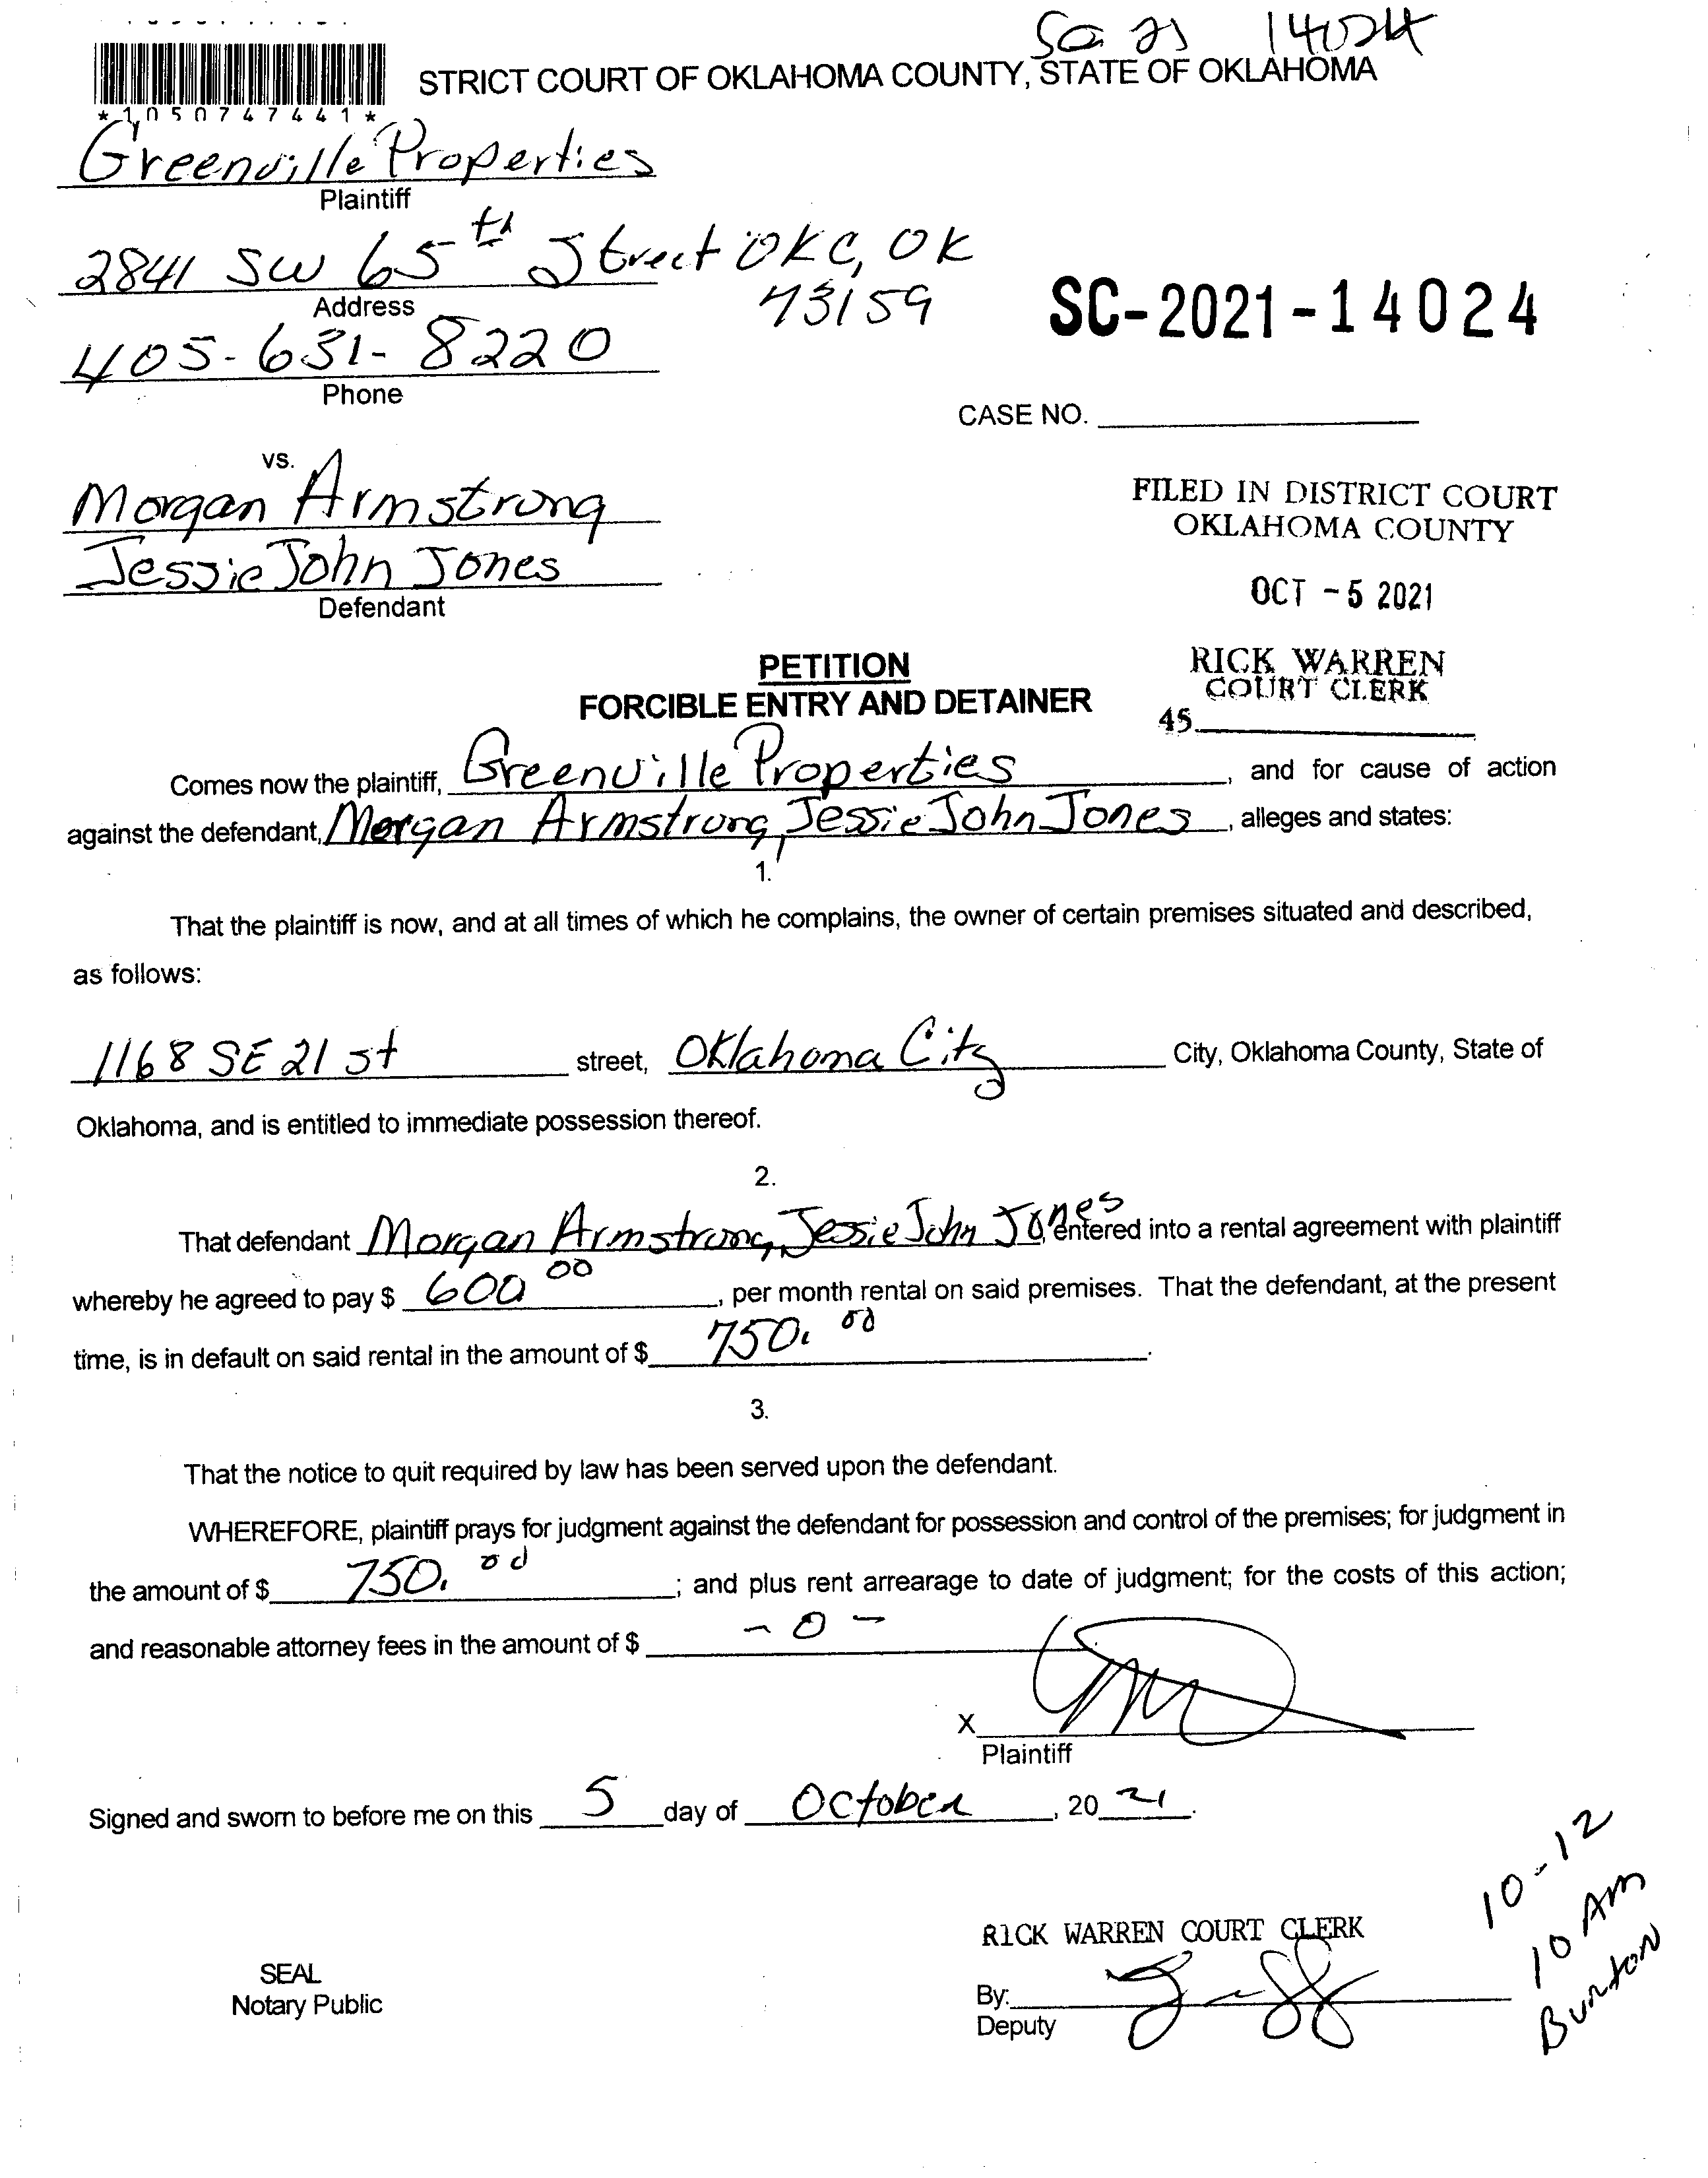 SC 21 14024
STRICT COURT OF OKLAHOMA COUNTY, STATE OF OKLAHOMA
*1050747441*
Greenville Properties
Plaintiff
2841 SW 65th Street OKC, OK
73159
Address
SC-2021-14024
405-631-8220
Phone
CASE NO.
vs.
Morgan Armstrong
Jessie John Jones
Defendant
FILED IN DISTRICT COURT
OKLAHOMA COUNTY
OCT -5 2021
RICK WARREN
COURT CLERK
45
PETITION
FORCIBLE ENTRY AND DETAINER
Comes now the plaintiff, Greenville Properties, and for cause of action
against the defendant, Morgan Armstrong, Jessie John Jones, alleges and states:
1.
That the plaintiff is now, and at all times of which he complains, the owner of certain premises situated and described,
as follows:
1168 SE 21 st street, Oklahoma City City, Oklahoma County, State of
Oklahoma, and is entitled to immediate possession thereof.
2.
That defendant Morgan Armstrong, Jessie John Jones, entered into a rental agreement with plaintiff
whereby he agreed to pay $ 600 00, per month rental on said premises. That the defendant, at the present
time, is in default on said rental in the amount of $ 750. 00.
3.
That the notice to quit required by law has been served upon the defendant.
WHEREFORE, plaintiff prays for judgment against the defendant for possession and control of the premises; for judgment in
the amount of $ 750. 00; and plus rent arrearage to date of judgment; for the costs of this action;
and reasonable attorney fees in the amount of $ - 0 -
X
Plaintiff
Signed and sworn to before me on this 5 day of October, 20 21.
10-12
10 AM
Burton
RICK WARREN COURT CLERK
SEAL
Notary Public
By:
Deputy